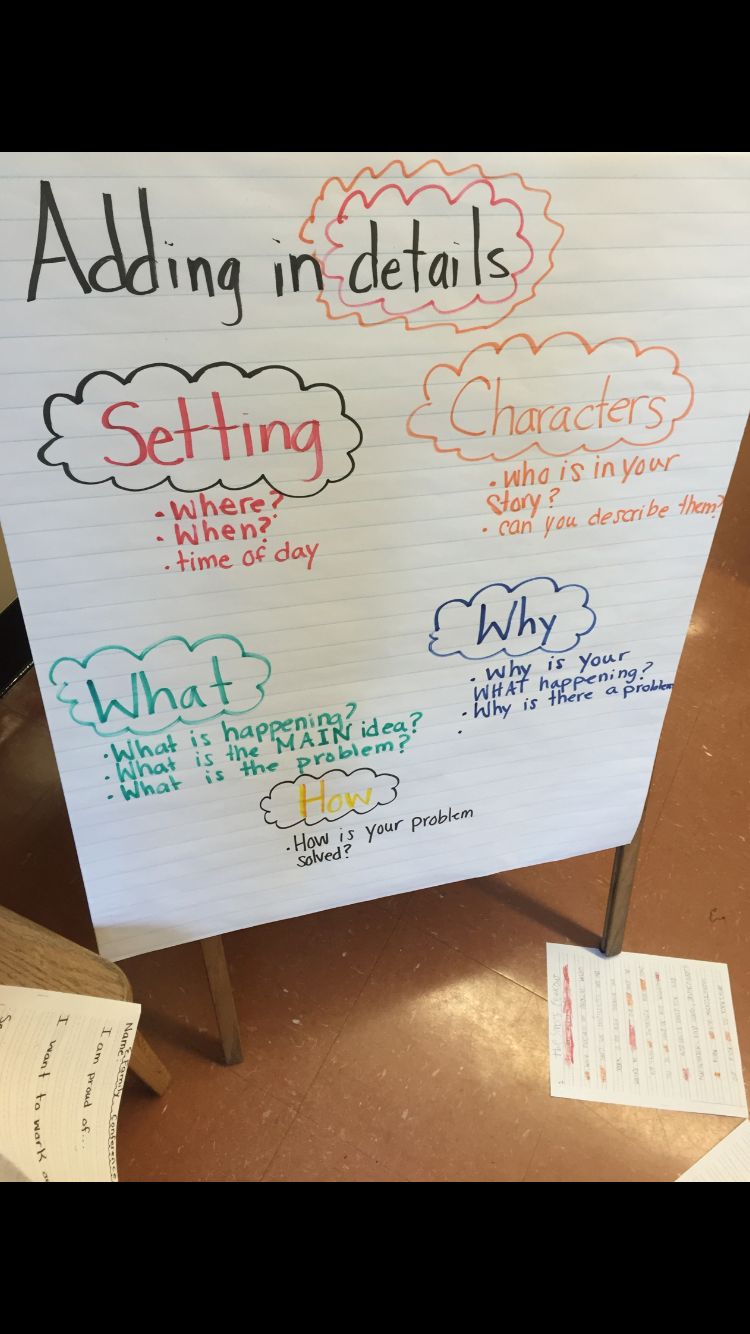 Adding in details
Setting
• Where?
• When?
• time of day
Characters
• who is in your
story?
• can you describe them?
What
• What is happening?
• What is the MAIN idea?
• What is the problem?
Why
• Why is your
WHAT happening?
• Why is there a problem
•
How
• How is your problem
solved?
Name Family Conference
I am proud of...
I want to work